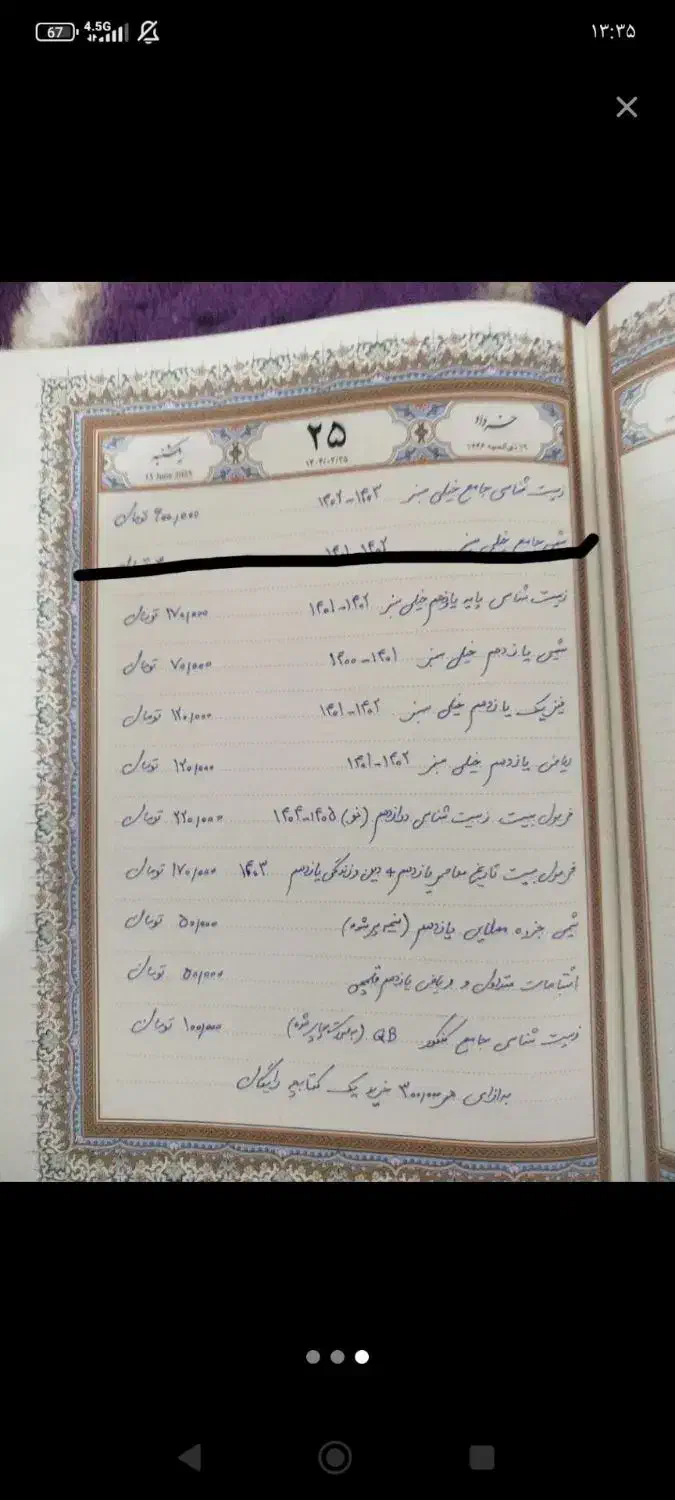 67 4.5G ۱۳:۳۵
خرداد ۲۵ یکشنبه
۱۴۰۴/۰۳/۲۵ 15 June 2025
زیست شناسی جامع خیلی سبز ۱۴۰۳-۱۴۰۲ ۹۰۰,۰۰۰ تومان
شیمی جامع خیلی سبز ۱۴۰۲-۱۴۰۱
زیست شناسی پایه یازدهم خیلی سبز ۱۴۰۲-۱۴۰۱ ۲۷۰,۰۰۰ تومان
شیمی یازدهم خیلی سبز ۱۴۰۱-۱۴۰۰ ۷۰,۰۰۰ تومان
فیزیک یازدهم خیلی سبز ۱۴۰۲-۱۴۰۱ ۱۲۰,۰۰۰ تومان
ریاضی یازدهم خیلی سبز ۱۴۰۲-۱۴۰۱ ۱۲۰,۰۰۰ تومان
فرمول بیست زیست شناسی دوازدهم (نو) ۱۴۰۵-۱۴۰۴ ۲۲۰,۰۰۰ تومان
فرمول بیست تاریخ معاصر یازدهم + دین و زندگی یازدهم ۱۴۰۳ ۱۷۰,۰۰۰ تومان
شیمی جزوه یازدهم ۵۰,۰۰۰ تومان
اشتباهات متداول ریاضی یازدهم قلمچی ۵۰,۰۰۰ تومان
زیست شناسی جامع کنکور QB ۱۰۰,۰۰۰ تومان
به ازای هر ۳۰۰,۰۰۰ خرید یک کتابچه رایگان